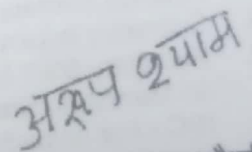 अरूप श्याम